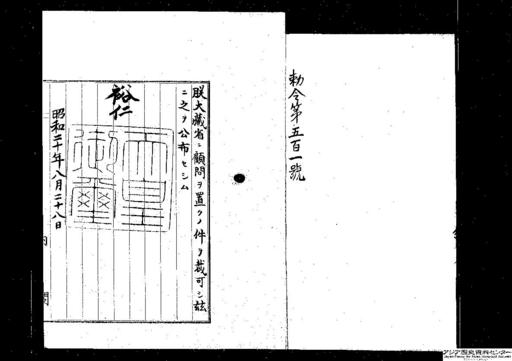 勅令第五百一號
朕大藏省ニ顧問ヲ置クノ件ヲ裁可シ玆
ニ之ヲ公布セシム
裕仁
天皇御璽
昭和二十年八月二十八日
内閣
アジア歴史資料センター